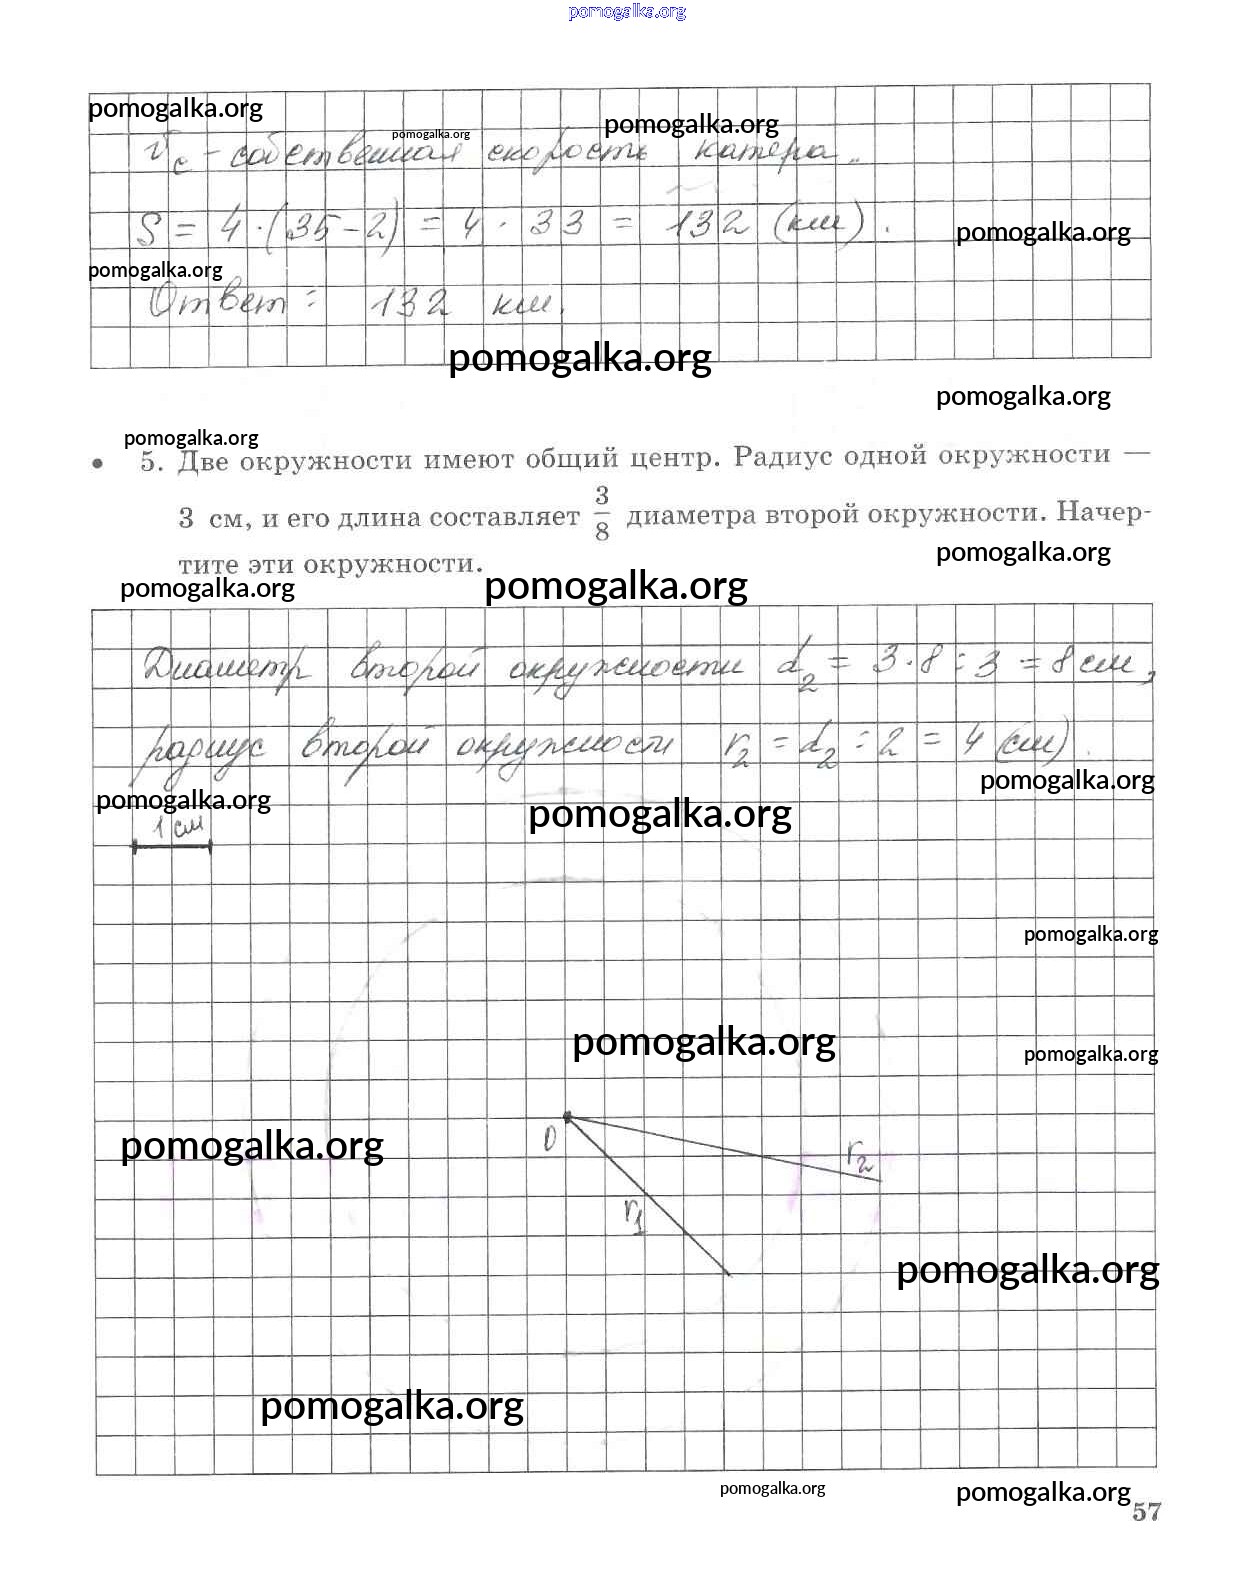 pomogalka.org
pomogalka.org
pomogalka.org
pomogalka.org
Vc – собственная скорость катера.
S = 4 · (35 – 2) = 4 · 33 = 132 (км).
pomogalka.org
pomogalka.org
Ответ: 132 км.
pomogalka.org
pomogalka.org
pomogalka.org
• 5. Две окружности имеют общий центр. Радиус одной окружности —
3 см, и его длина составляет 3/8 диаметра второй окружности. Начер-
тите эти окружности.
pomogalka.org
pomogalka.org
pomogalka.org
Диаметр второй окружности d2 = 3 · 8 : 3 = 8 см,
радиус второй окружности r2 = d2 : 2 = 4 (см).
pomogalka.org
pomogalka.org
pomogalka.org
1 см
pomogalka.org
pomogalka.org
pomogalka.org
O
pomogalka.org
r2
r1
pomogalka.org
pomogalka.org
pomogalka.org
pomogalka.org
57